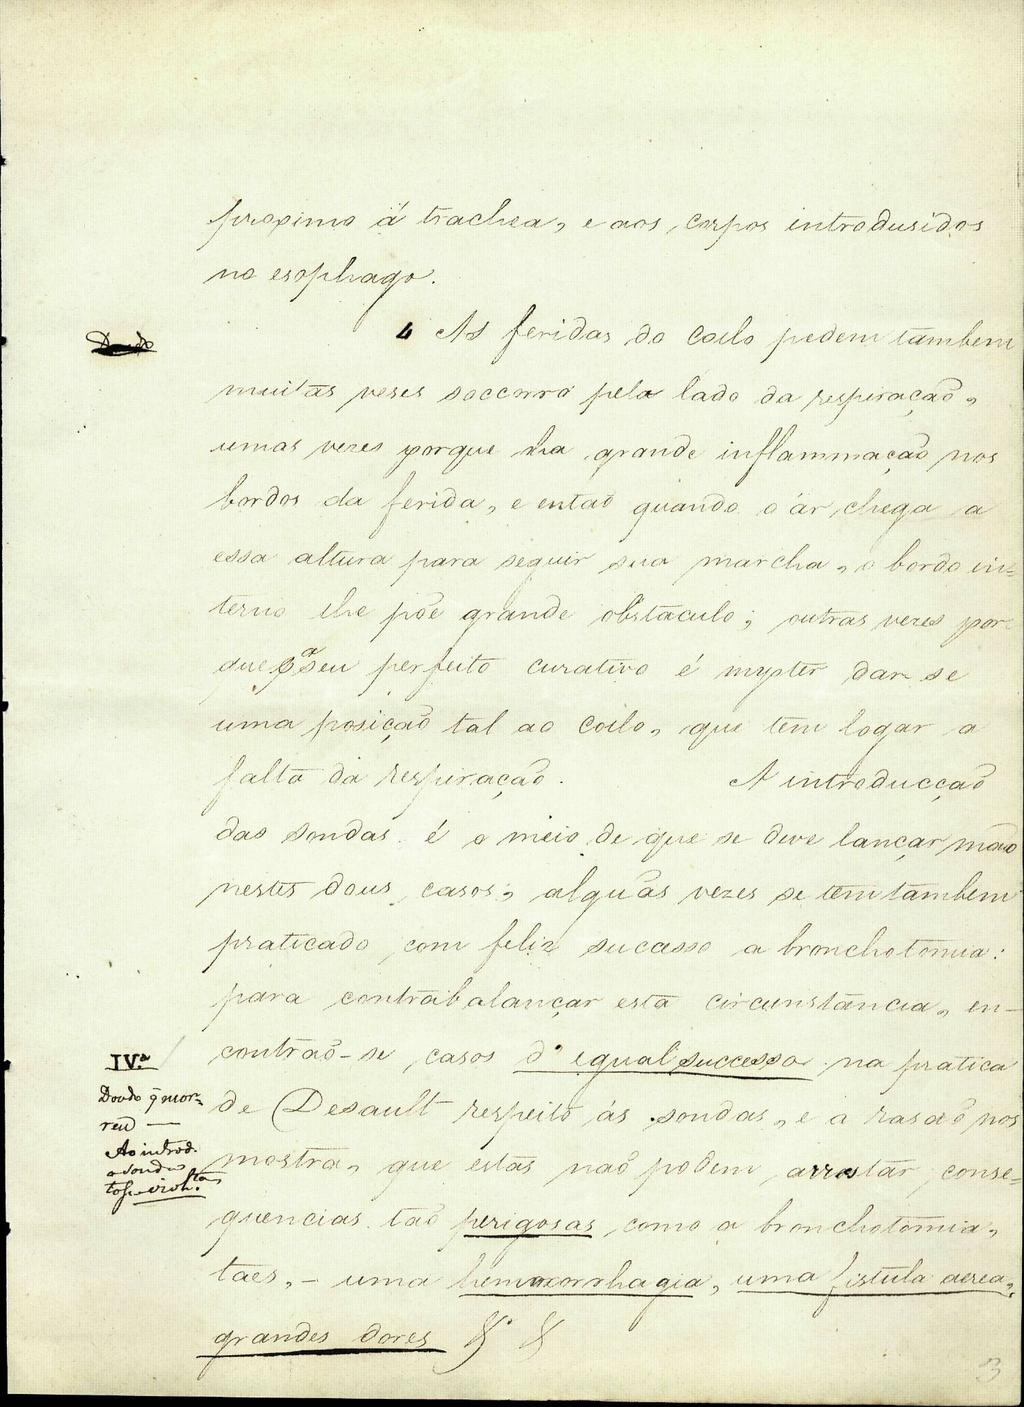 proximo á trachea, e aos corpos introdusidos
no esophago.
4 As feridas do collo pedem tambem
muitas veses soccorro pelo lado da respiração,
umas vezes porque ha grande inflammação nos
bordos da ferida, e entaõ quando o ár chega a
essa altura para seguir sua marcha, o bordo in=
terno lhe põe grande obstaculo; outras vezes por-
que pª seu perfeito curativo é myster dar-se
uma posição tal ao collo, que tem logar a
falta da respiração. A introducção
das sondas é o meio de que se deve lançar mão
nestes dous casos; alguãs vezes se tem tambem
praticado com feliz sucesso a bronchotomia:
para contrabalançar esta circunstância, en-
contraõ-se casos d'egual successo na pratica
IV.ª
de Desault respeito ás sondas, e a rasaõ nos
Doudo q̃ mor-
reu —
mostra, que estas naõ podem arrostar conse-
Ao introd.
a sonda
tosse
quencias taõ perigosas como a bronchotomia,
taes, – uma hemmorrhagia, uma fistula aerea,
grandes dores & &
3